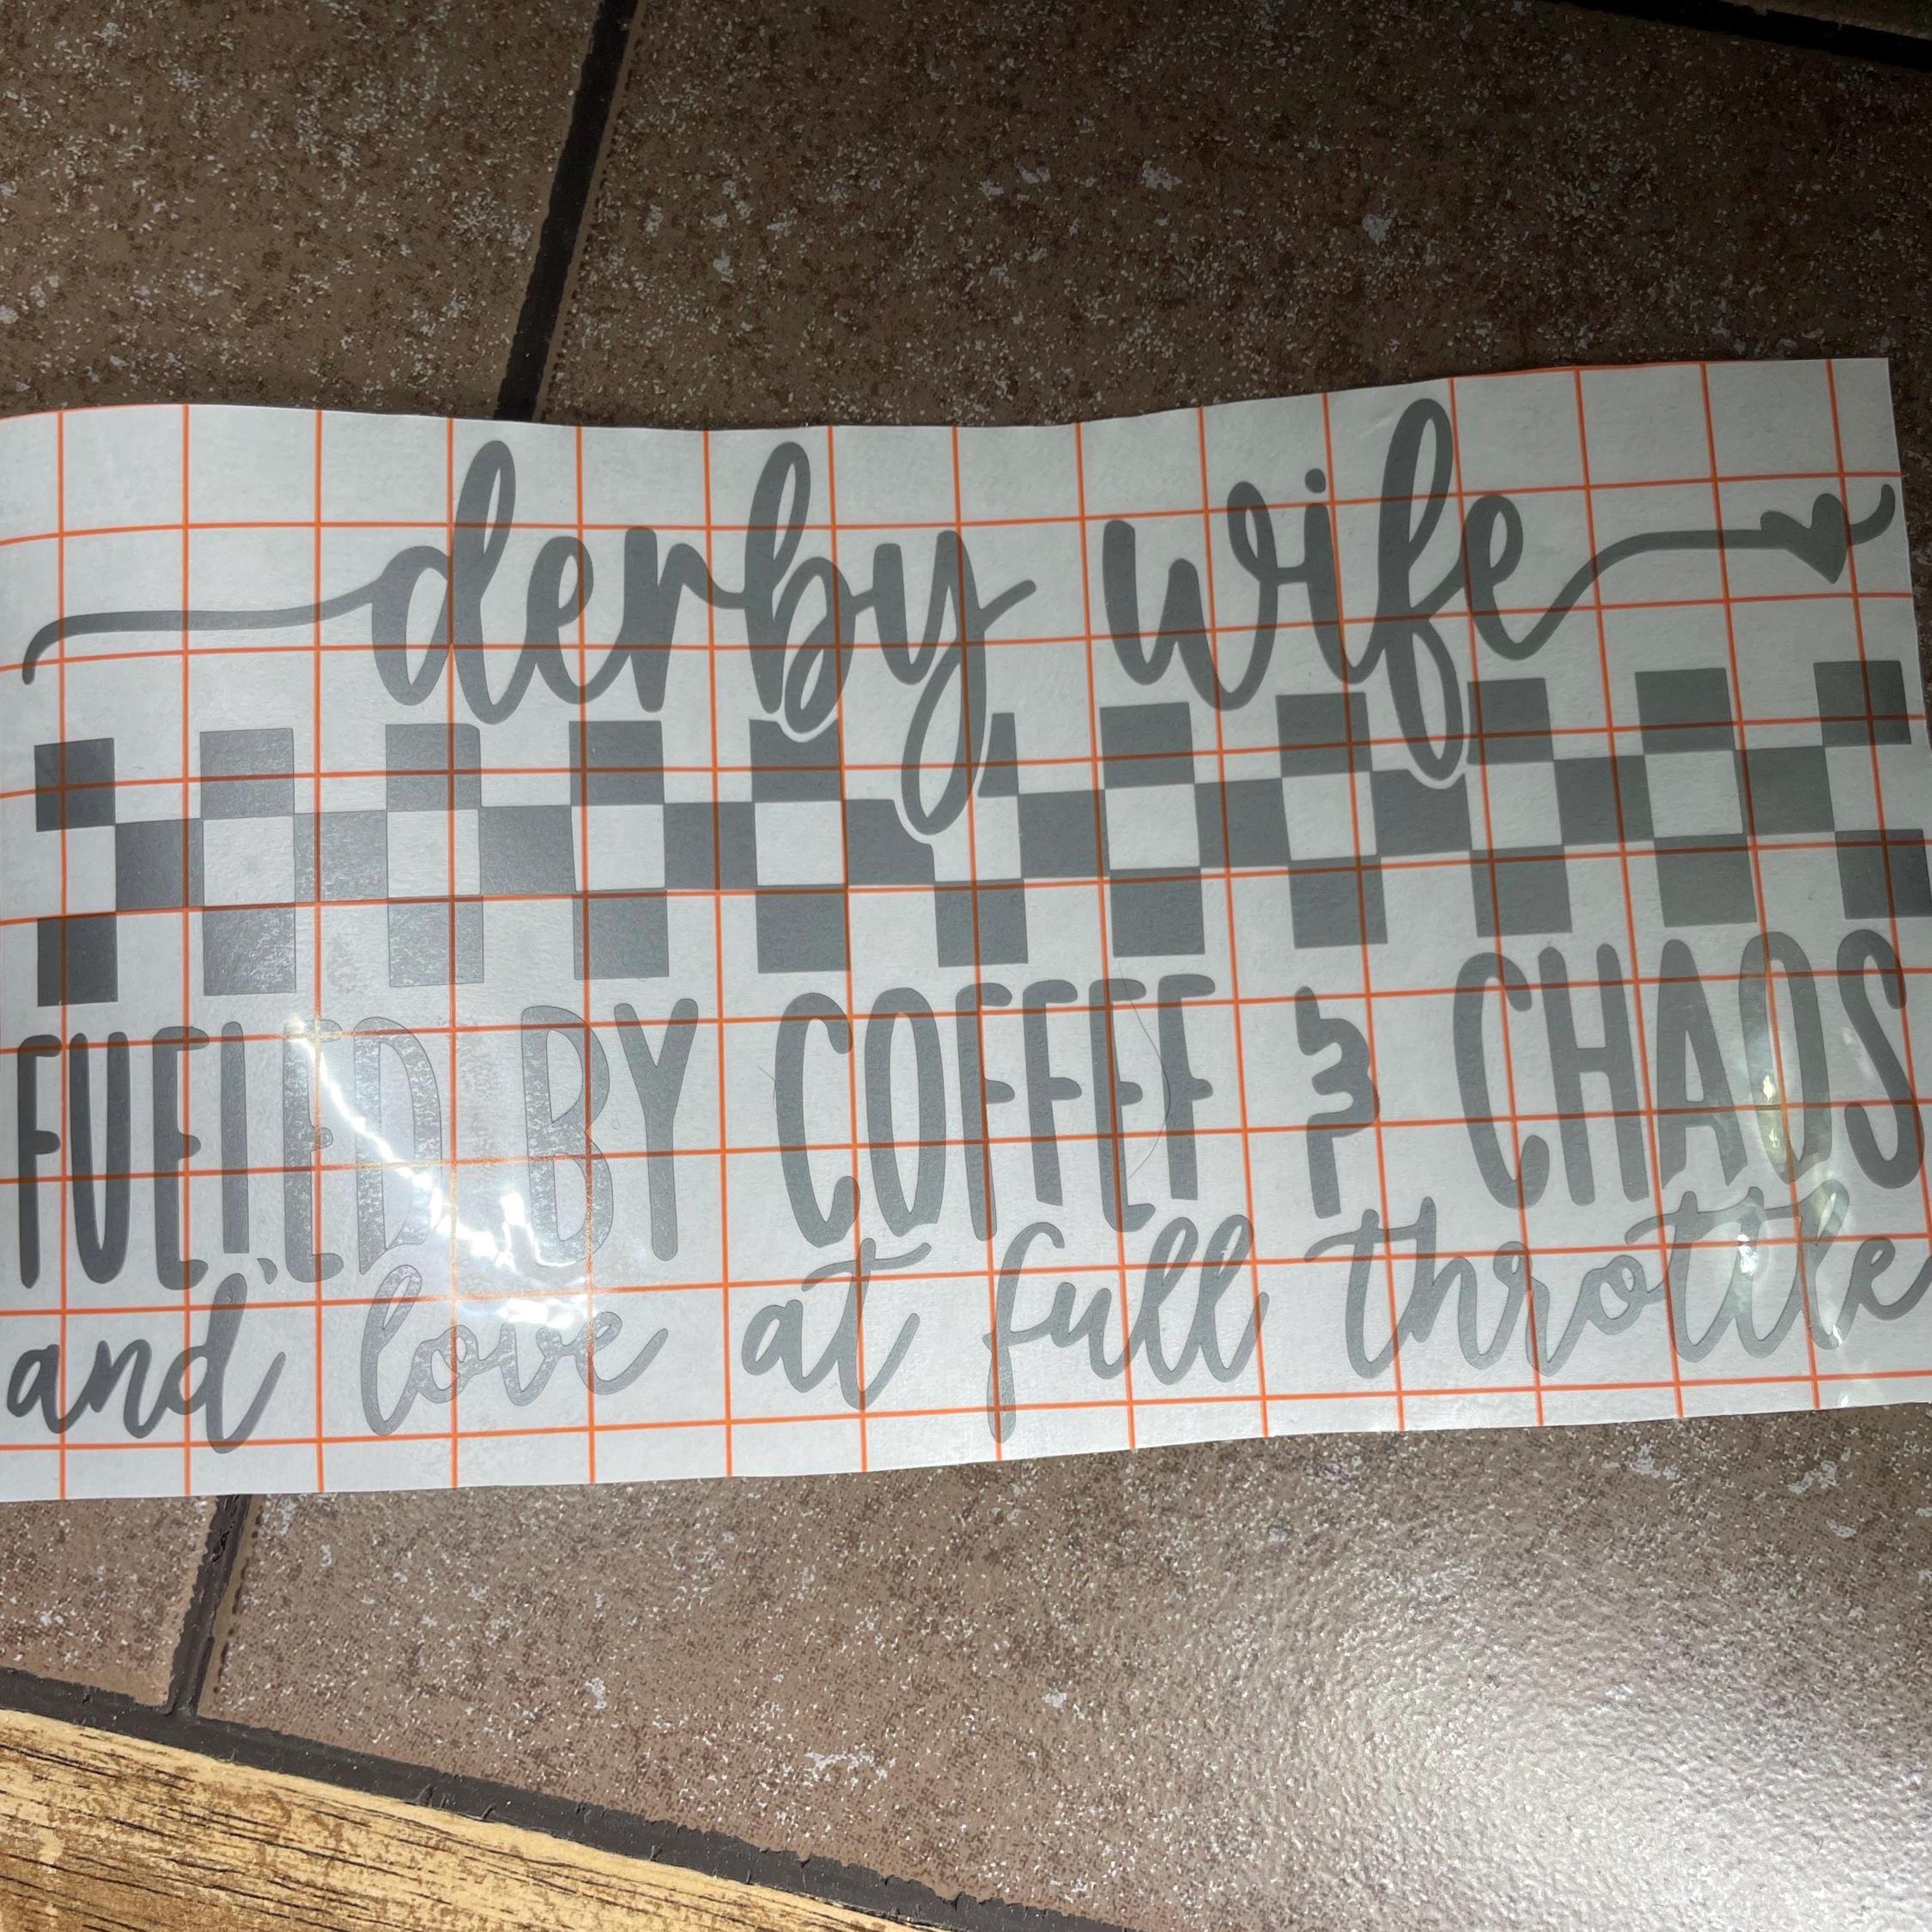 derby wife
FUELED BY COFFEE & CHAOS
and love at full throttle